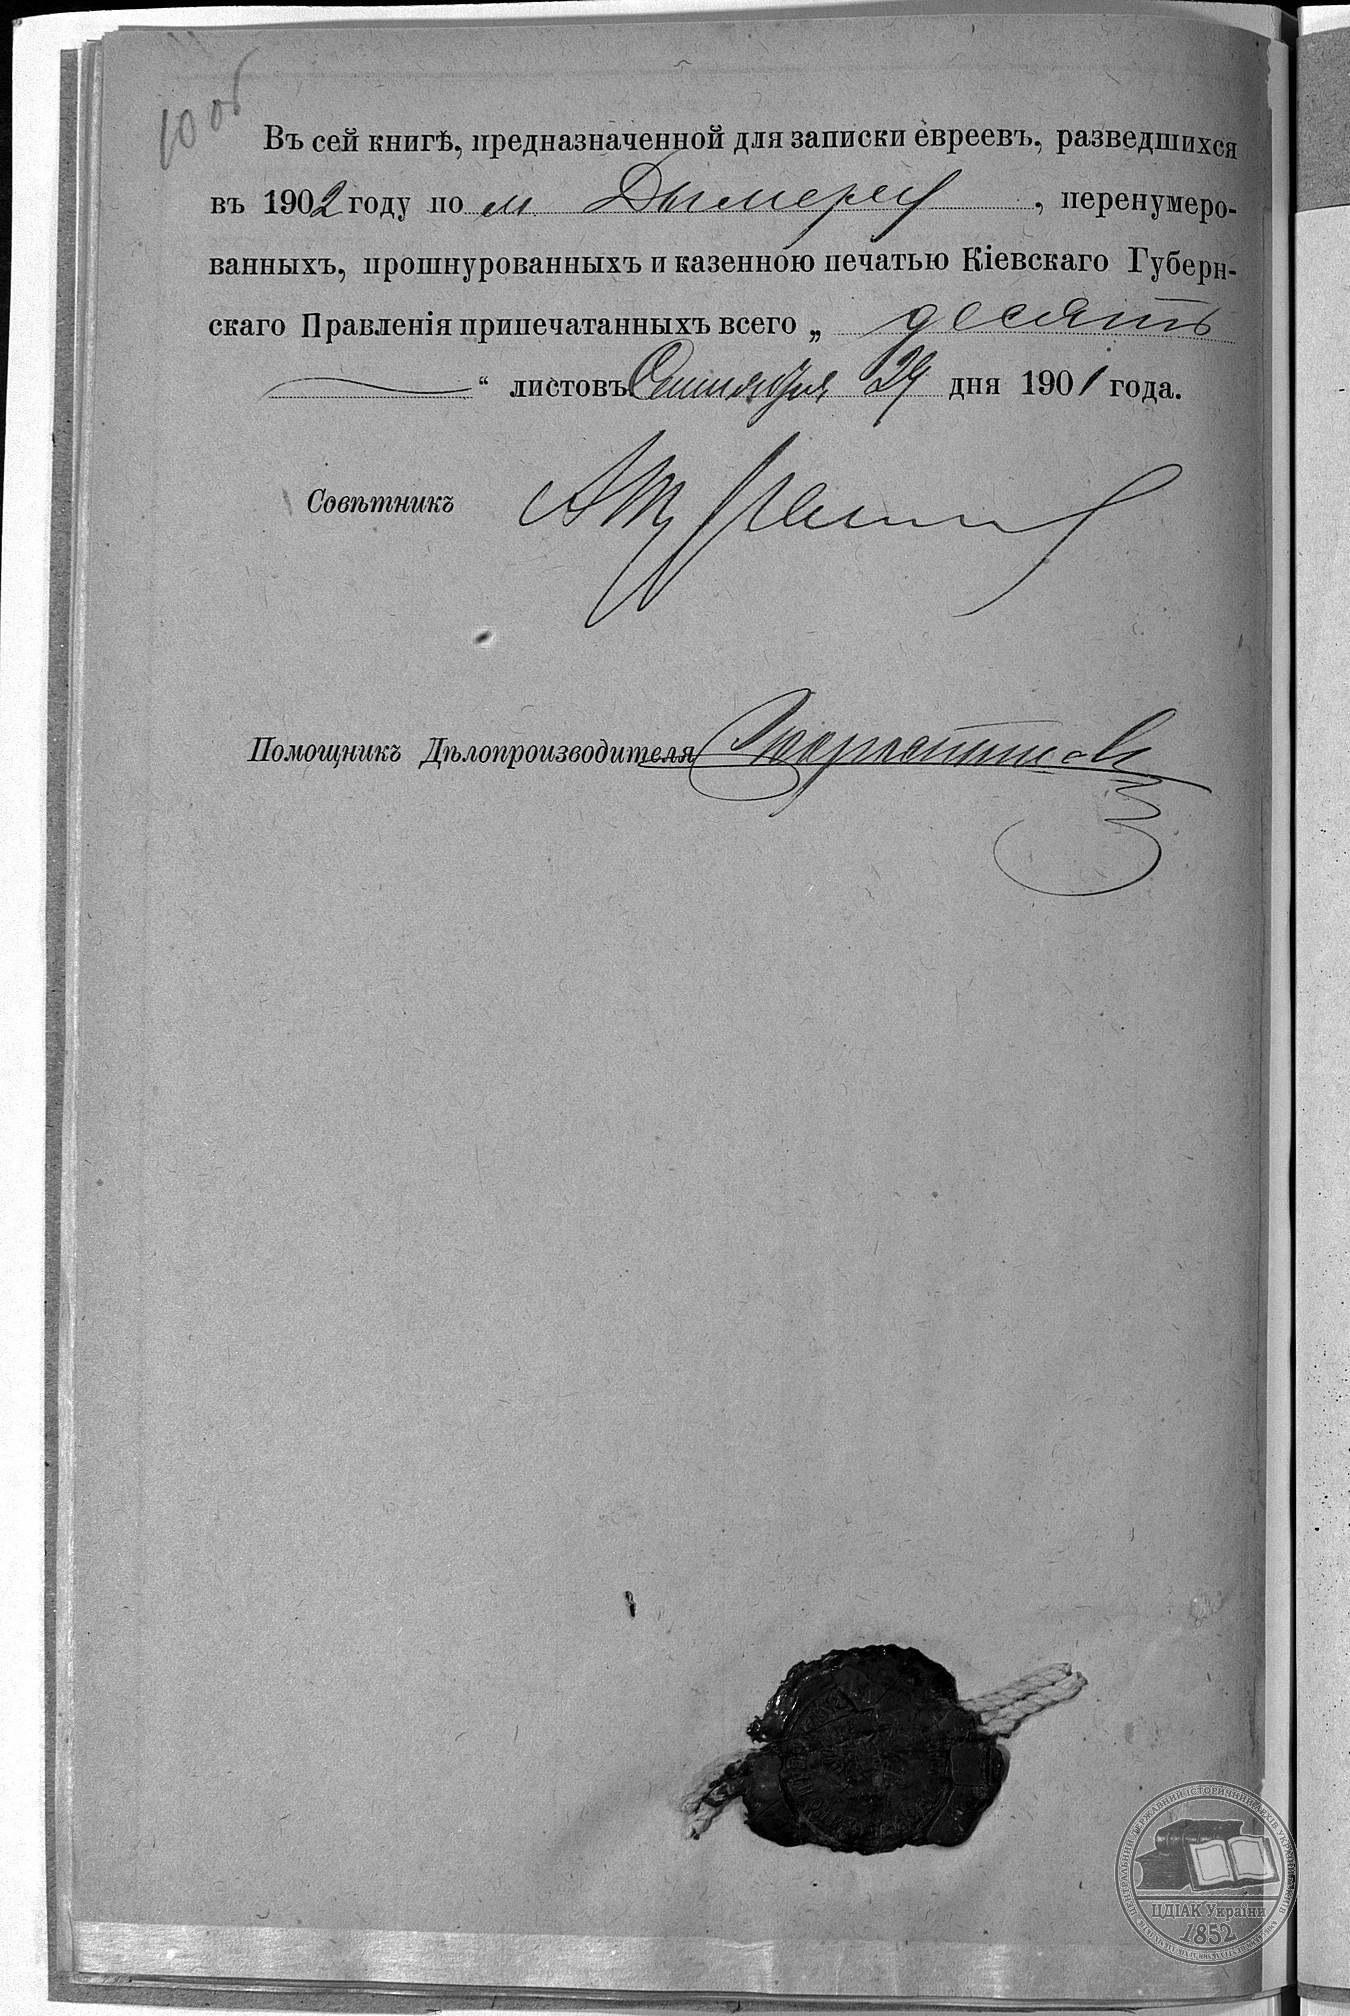 10 об
Въ сей книгѣ, предназначенной для записки евреевъ, разведшихся
въ 1902 году по м Дымеру, перенумеро-
ванныхъ, прошнурованныхъ и казенною печатью Кіевскаго Губерн-
скаго Правленія припечатанныхъ всего „ десять
“ листовъ Сентября 29 дня 1901 года.
Совѣтникъ
Помощникъ Дѣлопроизводителя
ЦЕНТРАЛЬНИЙ ДЕРЖАВНИЙ ІСТОРИЧНИЙ АРХІВ УКРАЇНИ
ЦДІАК України
1852